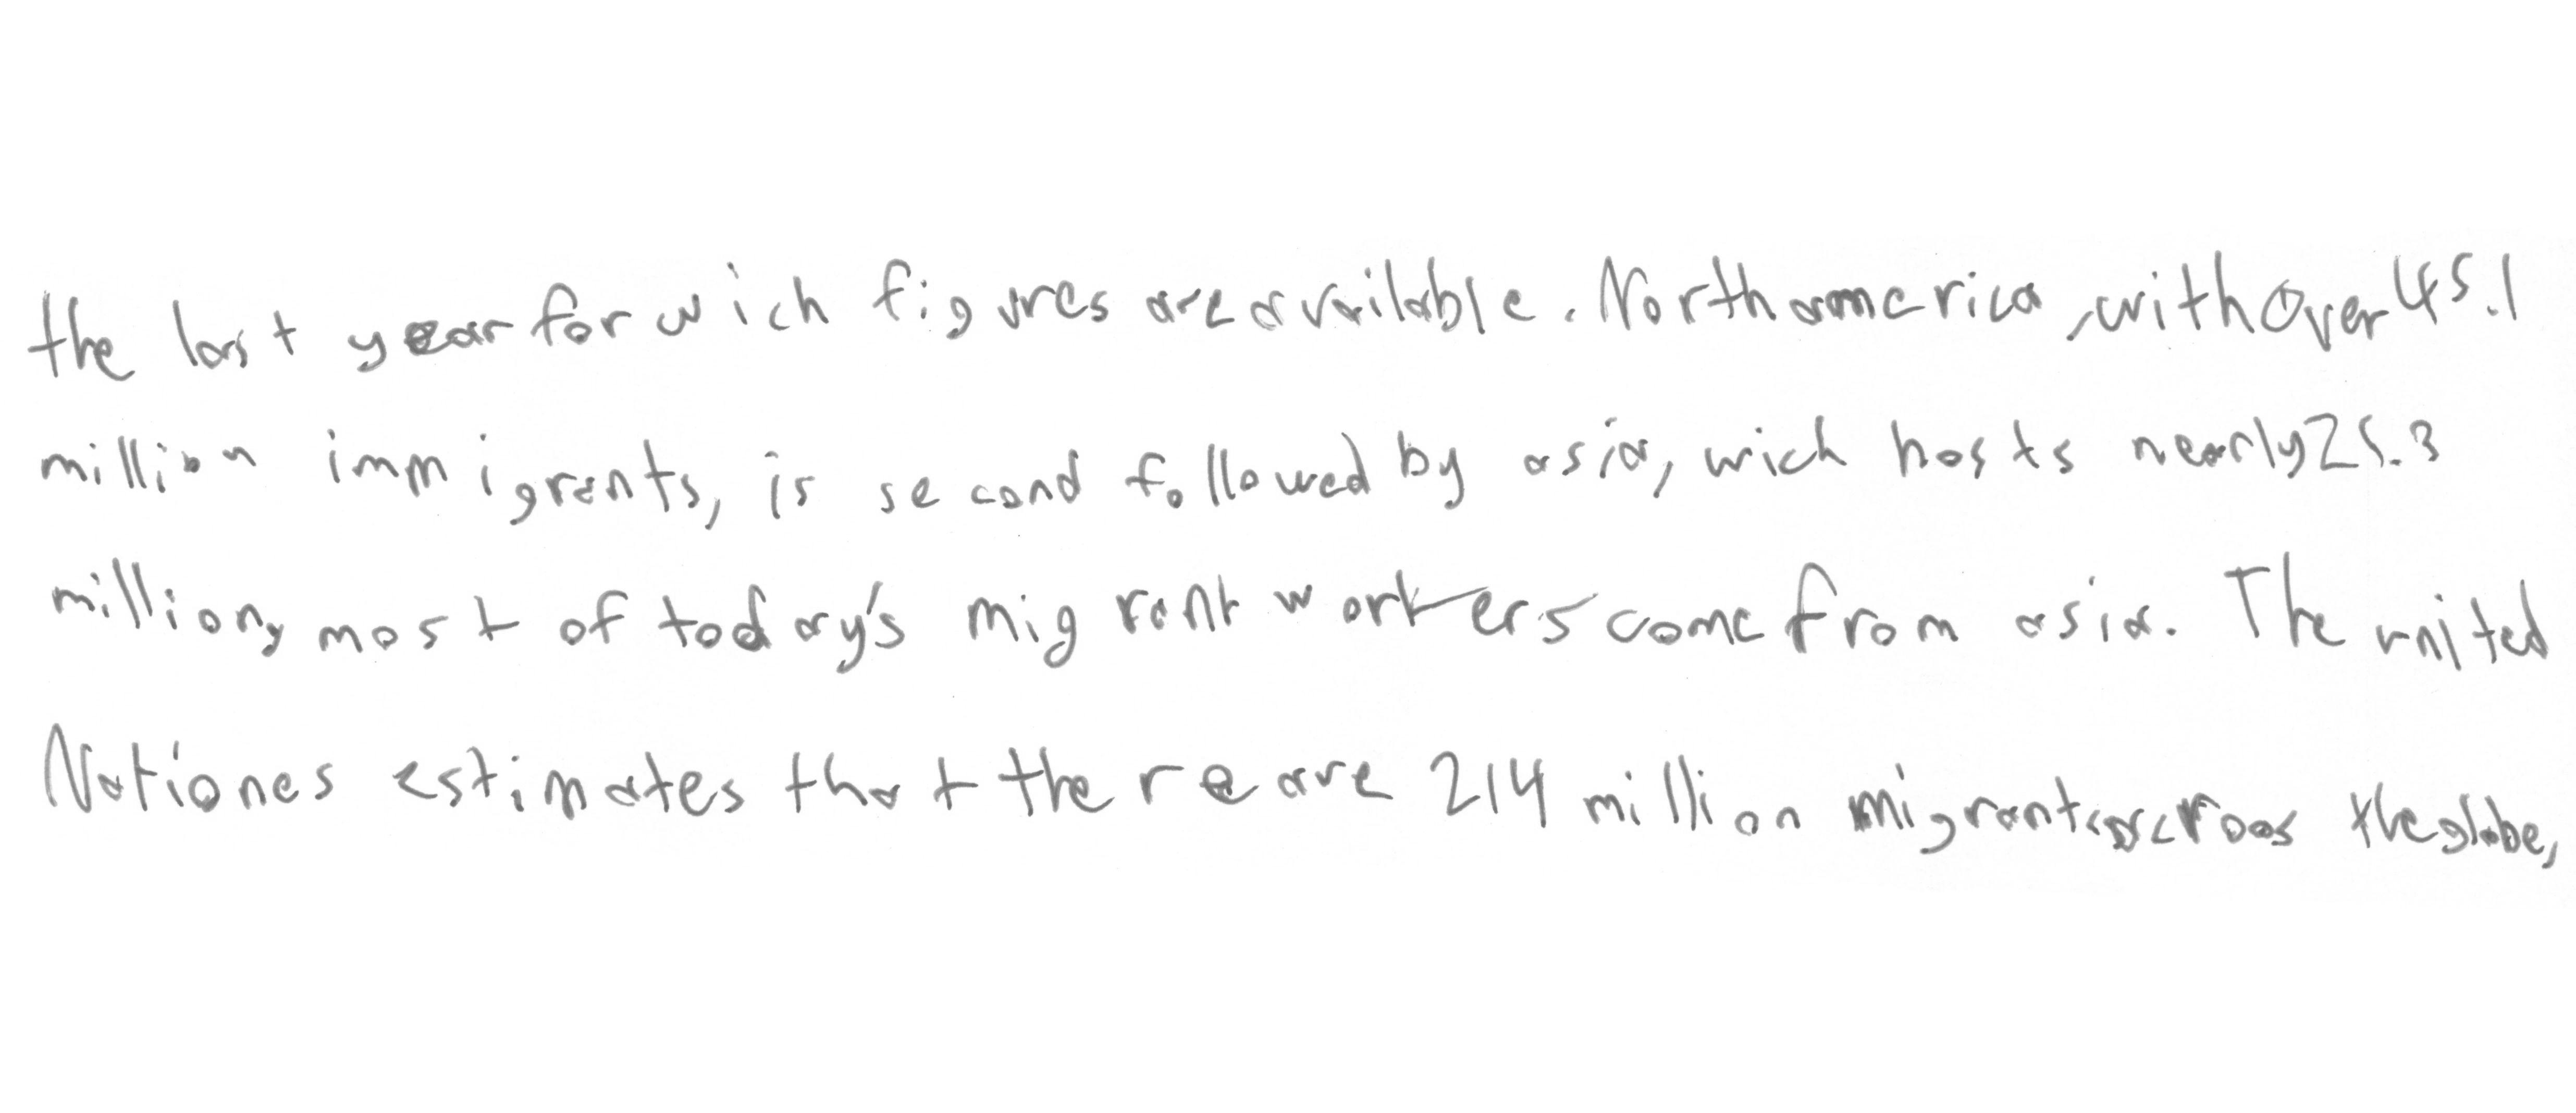 the last year for wich figures are available. North america, with over 45.1
million immigrants, is second followed by asia, wich hosts nearly 25.3
million, most of today's migrant workers come from asia. The united
Nationes estimates that there are 214 million migrants acroos the globe,